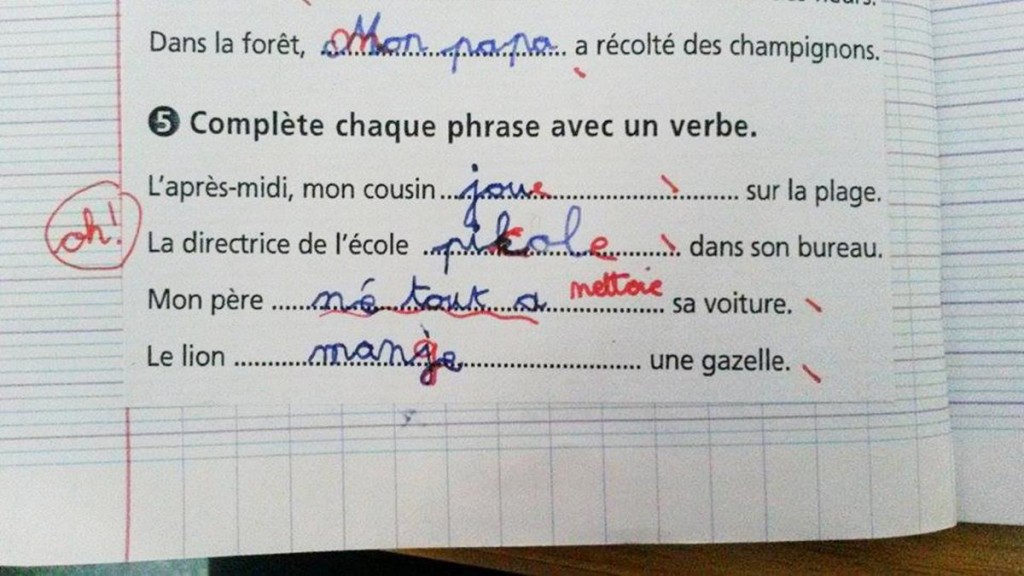 Dans la forêt, Mon papa a récolté des champignons.
5 Complète chaque phrase avec un verbe.
L'après-midi, mon cousin joue sur la plage.
oh! La directrice de l'école pikole dans son bureau.
Mon père né tout a mettoie sa voiture.
Le lion mange une gazelle.